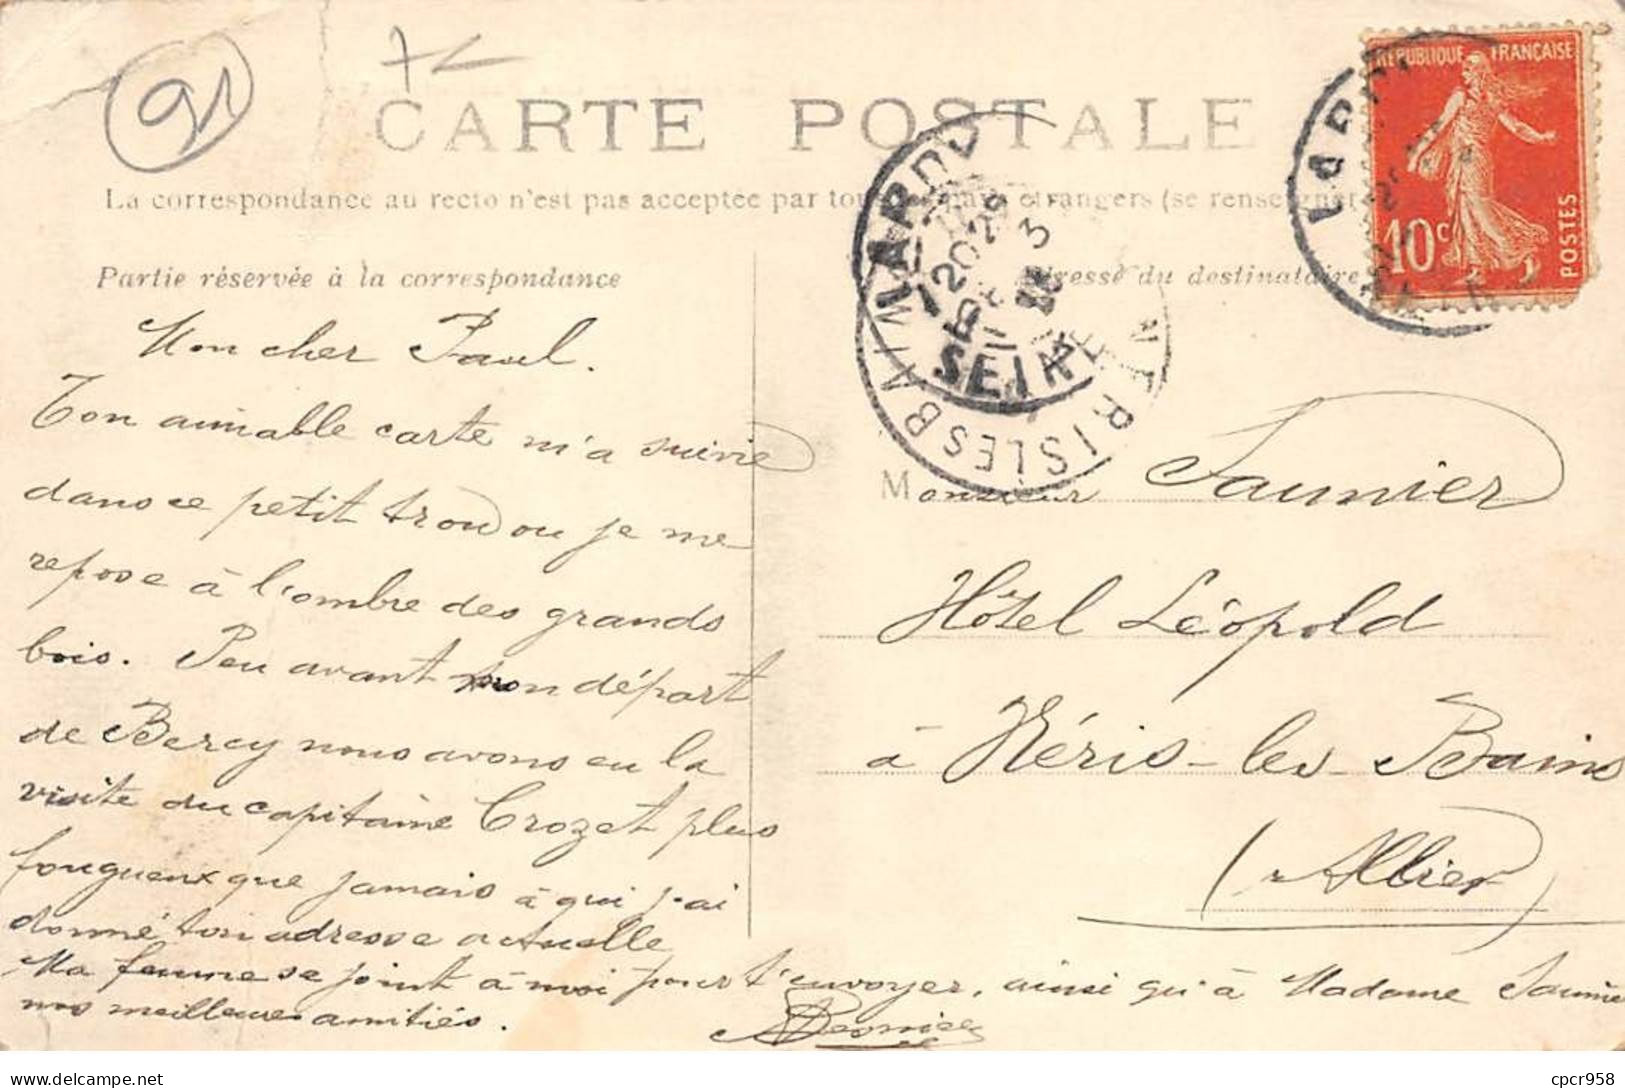 91
CARTE POSTALE
La correspondance au recto n'est pas acceptée par tous pays étrangers (se renseigner
RÉPUBLIQUE FRANÇAISE
10c
POSTES
SEINE
NERIS LES BAINS
Partie réservée à la correspondance
Adresse du destinataire
Mon cher Paul.
Ton aimable carte m'a suivie
dans ce petit trou ou je me
repose à l'ombre des grands
bois. Peu avant mon départ
de Bercy nous avons eu la
visite du capitaine Crozet plus
fougueux que jamais à qui j'ai
donné ton adresse actuelle
Ma femme se joint à moi pour t'envoyer, ainsi qu'à Madame Saunier
nos meilleures amitiés.
Monsieur Saunier
Hôtel Léopold
à Néris-les-Bains
(Allier)
delcampe.net
cpcr958